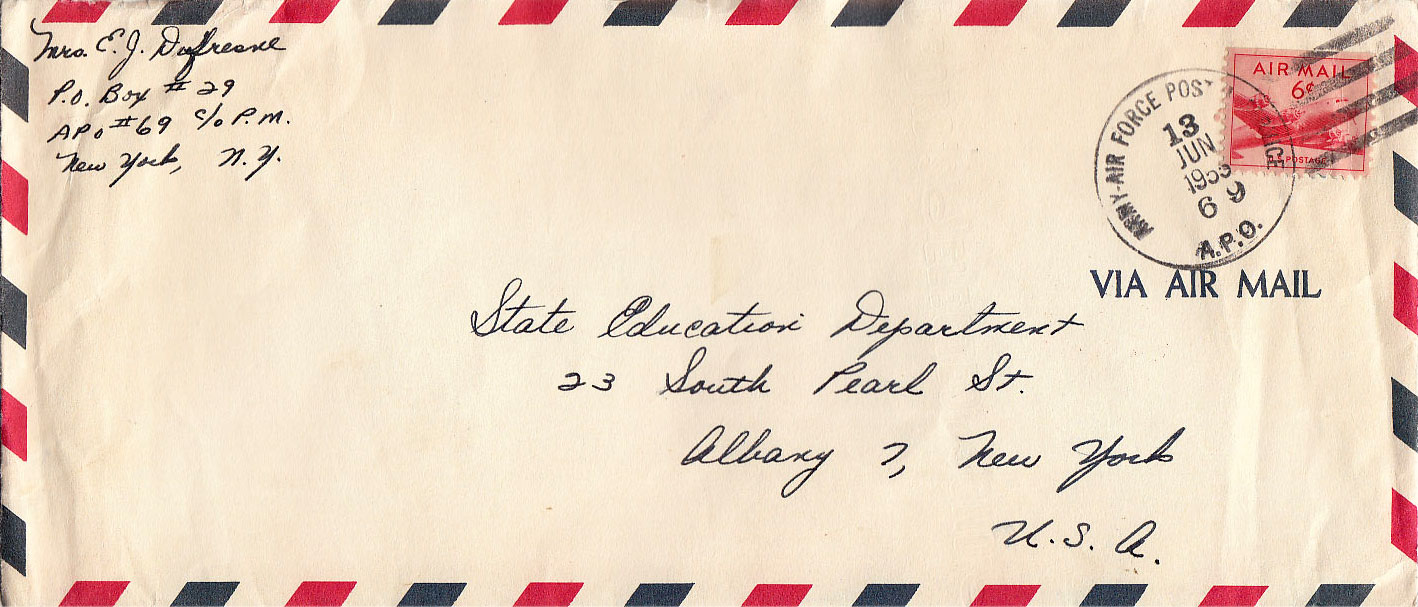 Mrs. E. J. Dufresne
P.O. Box # 29
APO #69 c/o P.M.
New York, N.Y.
ARMY-AIR FORCE POSTAL
13
JUN
1953
69
A.P.O.
AIR MAIL
6¢
U.S. POSTAGE
VIA AIR MAIL
State Education Department
23 South Pearl St.
Albany 7, New York
U.S.A.